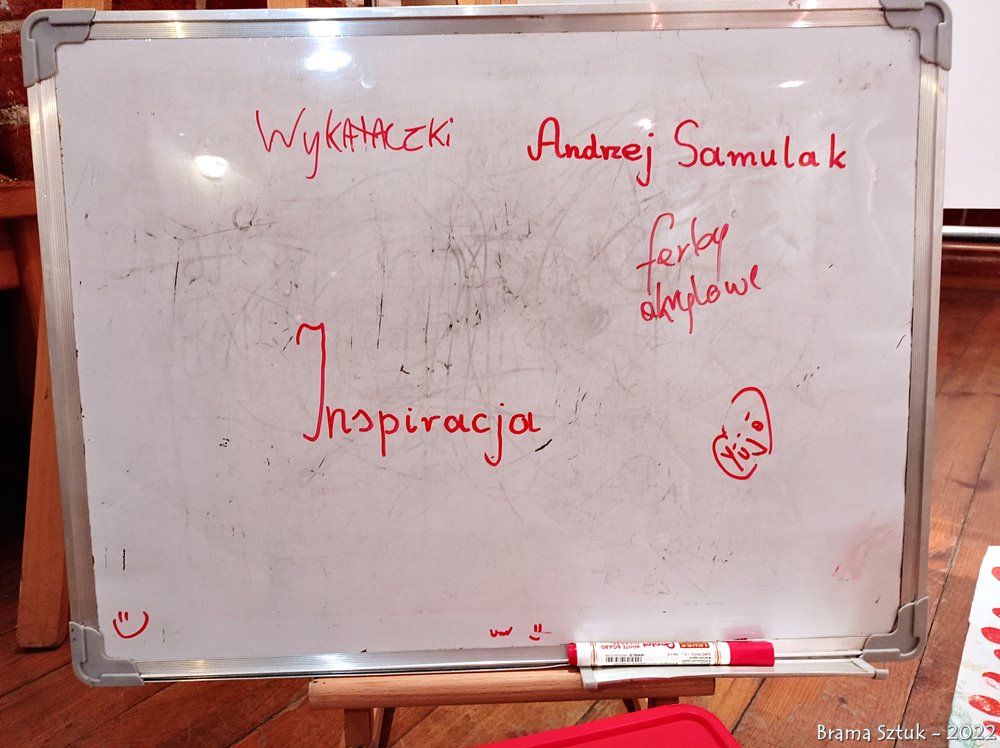 WykAŁACZKi
Andrzej Samulak
farby
akrylowe
Inspiracja
WHITE BOARD
Brama Sztuk - 2022